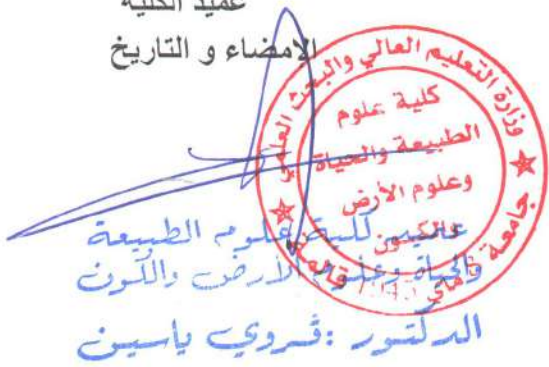 عميد الكلية
الامضاء و التاريخ
وزارة التعليم العالي والبحث العلمي
كلية علوم
الطبيعة والحياة
وعلوم الأرض
والكون
جامعة 8 ماي 1945 قالمة
عميد كلية علوم الطبيعة
والحياة وعلوم الأرض والكون
الدكتور : ڤروي ياسين